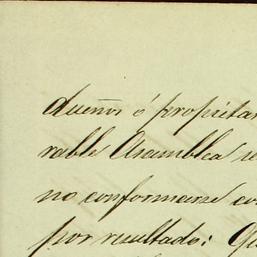 dueños ó propietar
rable Asamblea re
no conformarse co
por resultado: Qu